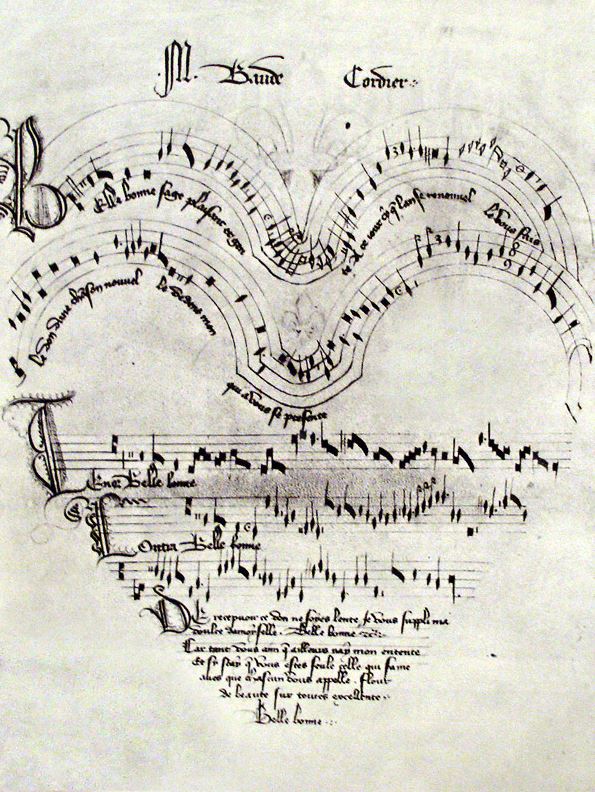 M. Baude Cordier
BElle bonne sage plaisant et gen te A ce iour cy q lan se renouuel le Vous fais
le don dune chanson nouuel le Dedens mon qui a vous se presente
TEnor Belle bonne
COntra Belle bonne
DE recepuoir ce don ne soyes lente Je vous suppli ma
doulce damoyselle. Belle bonne
Car tant vous aim qailleurs nay mon entente
Et si scay q vous estes seule celle qui fame
aues que chascun vous appelle. Flour
de beaute sur toutes excellente.
Belle bonne.